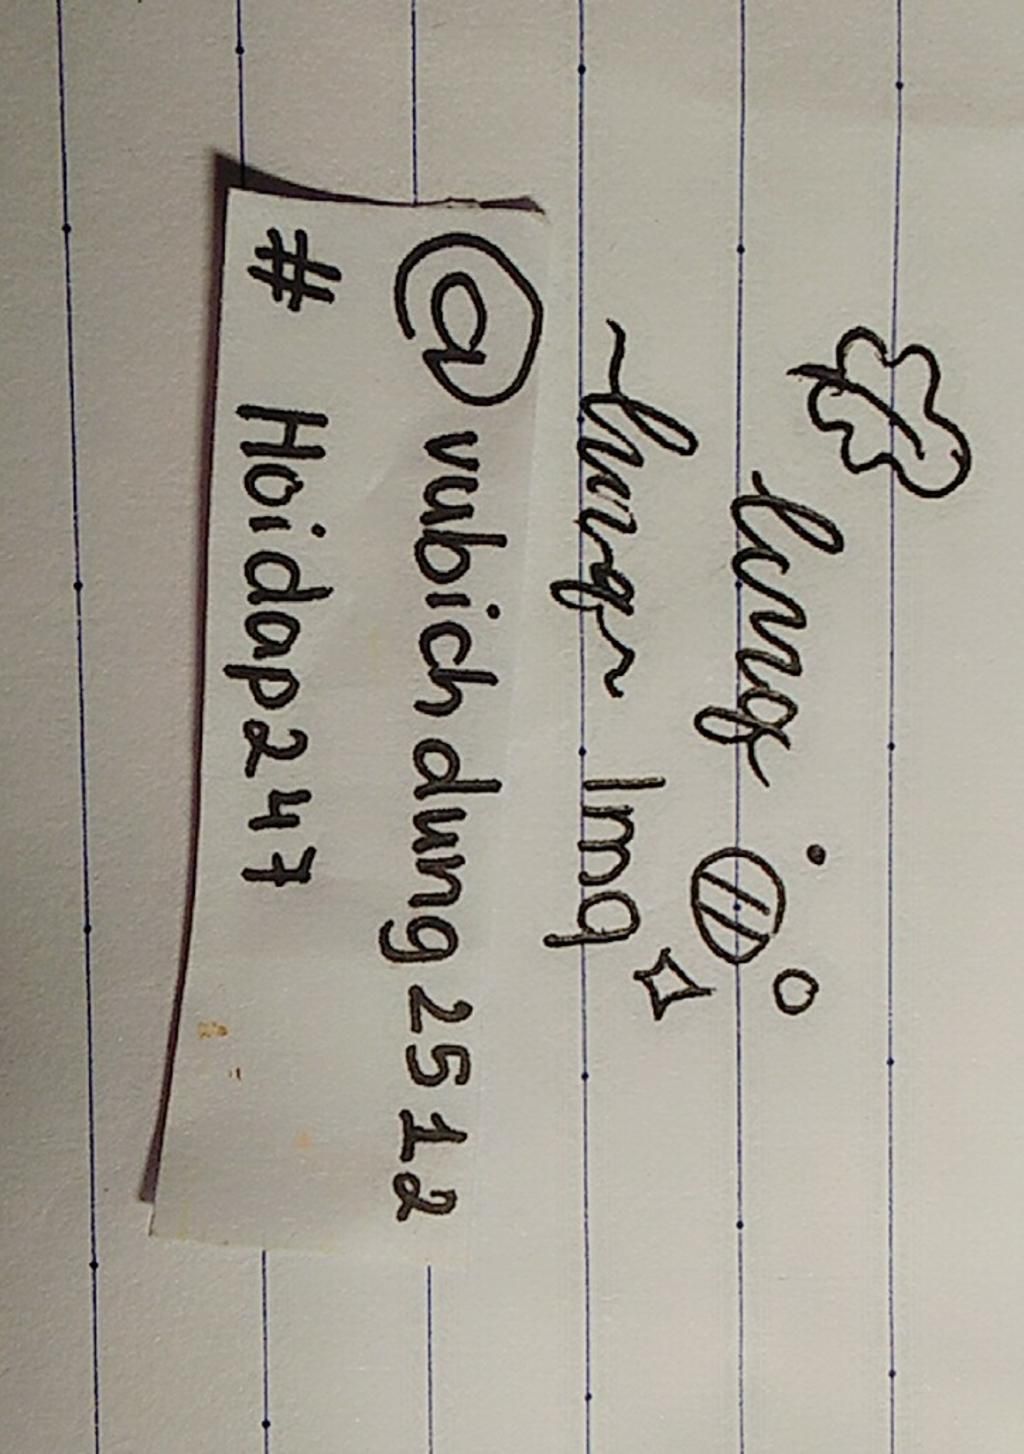 lmq
~lmq~ lmq
@vubichdung2512
# Hoidap247